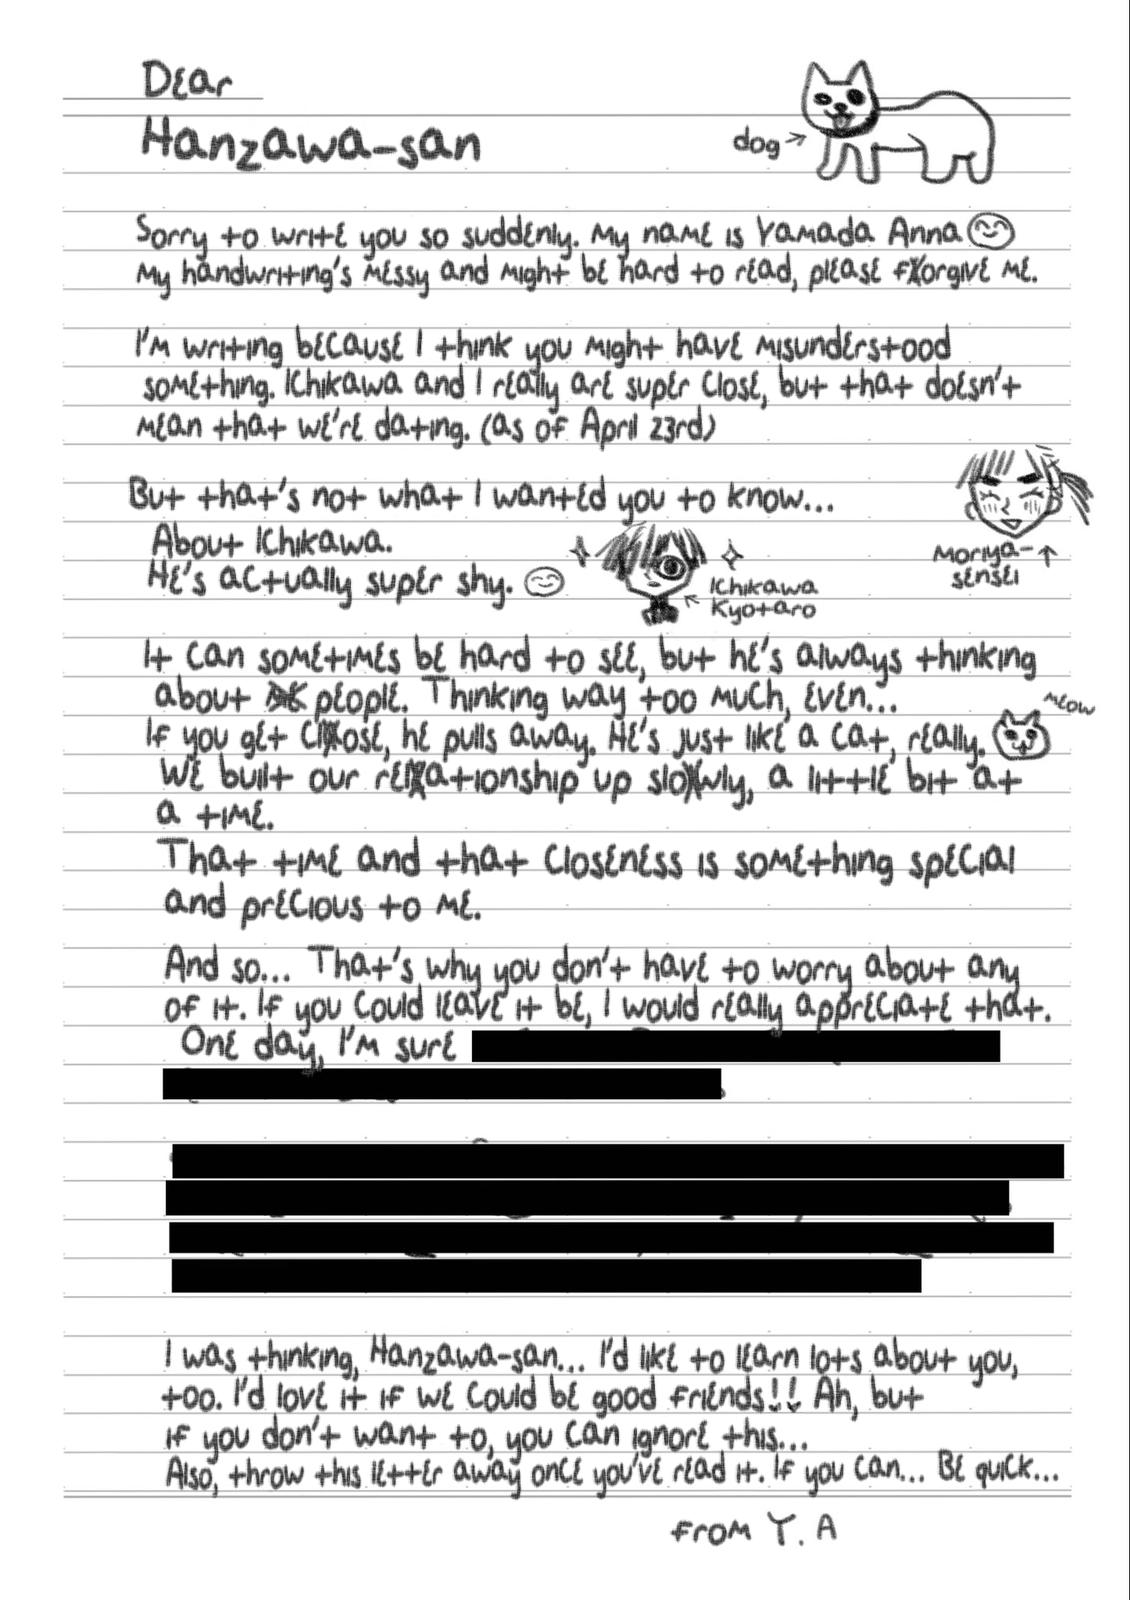 Dear
Hanzawa-san
dog →
Sorry to write you so suddenly. My name is Yamada Anna
My handwriting's messy and might be hard to read, please forgive me.
I'm writing because I think you might have misunderstood
something. Ichikawa and I really are super close, but that doesn't
mean that we're dating. (as of April 23rd)
But that's not what I wanted you to know...
Moriya-
sensei
About Ichikawa.
He's actually super shy.
Ichikawa
Kyotaro
It can sometimes be hard to see, but he's always thinking
about people. Thinking way too much, even...
meow
If you get close, he pulls away. He's just like a cat, really.
We built our relationship up slowly, a little bit at
a time.
That time and that closeness is something special
and precious to me.
And so... That's why you don't have to worry about any
of it. If you could leave it be, I would really appreciate that.
One day, I'm sure
I was thinking, Hanzawa-san... I'd like to learn lots about you,
too. I'd love it if we could be good friends!! Ah, but
if you don't want to, you can ignore this...
Also, throw this letter away once you've read it. If you can... Be quick...
from Y. A